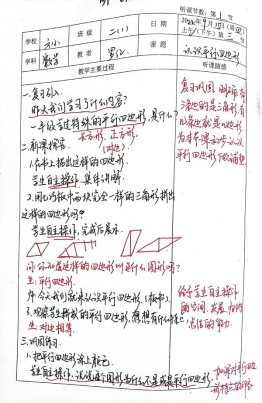 听课节数：第 节
学校
班级
二（1）
日期
2022年9月15日
上午/下午 第 节
学科
数学
教者
课题
认识平行四边形
教学主要过程
听课随感
一、复习引入
昨天我们学习了什么内容？
一年级学过特殊的平行四边形，是什么？
长方形，正方形.
（对边）
二、新课探究.
1.在书上描出这样的四边形.
学生自主操作，集体讲解.
2.用七巧板中两块完全一样的三角形拼出
这样的四边形吗？
学生自主操作，完成后展示.
问：你知道这样的四边形叫什么图形吗？
生：平行四边形.
师：今天我们就来认识平行四边形.（板书）.
3.观察学生拼成的平行四边形，想想有什么特点.
生：对边相等.
三、巩固练习.
1.把平行四边形涂上颜色.
学生自主操作，说说这个图形为什么不是或是平行四边形
复习巩固，明确有
3条边的是三角形，有
4条边就是四边形，
为本节课的学习认识
平行四边形做铺垫
给予学生自主操作
的空间，发展
总结的能力.
加深对平行四边
形特点的